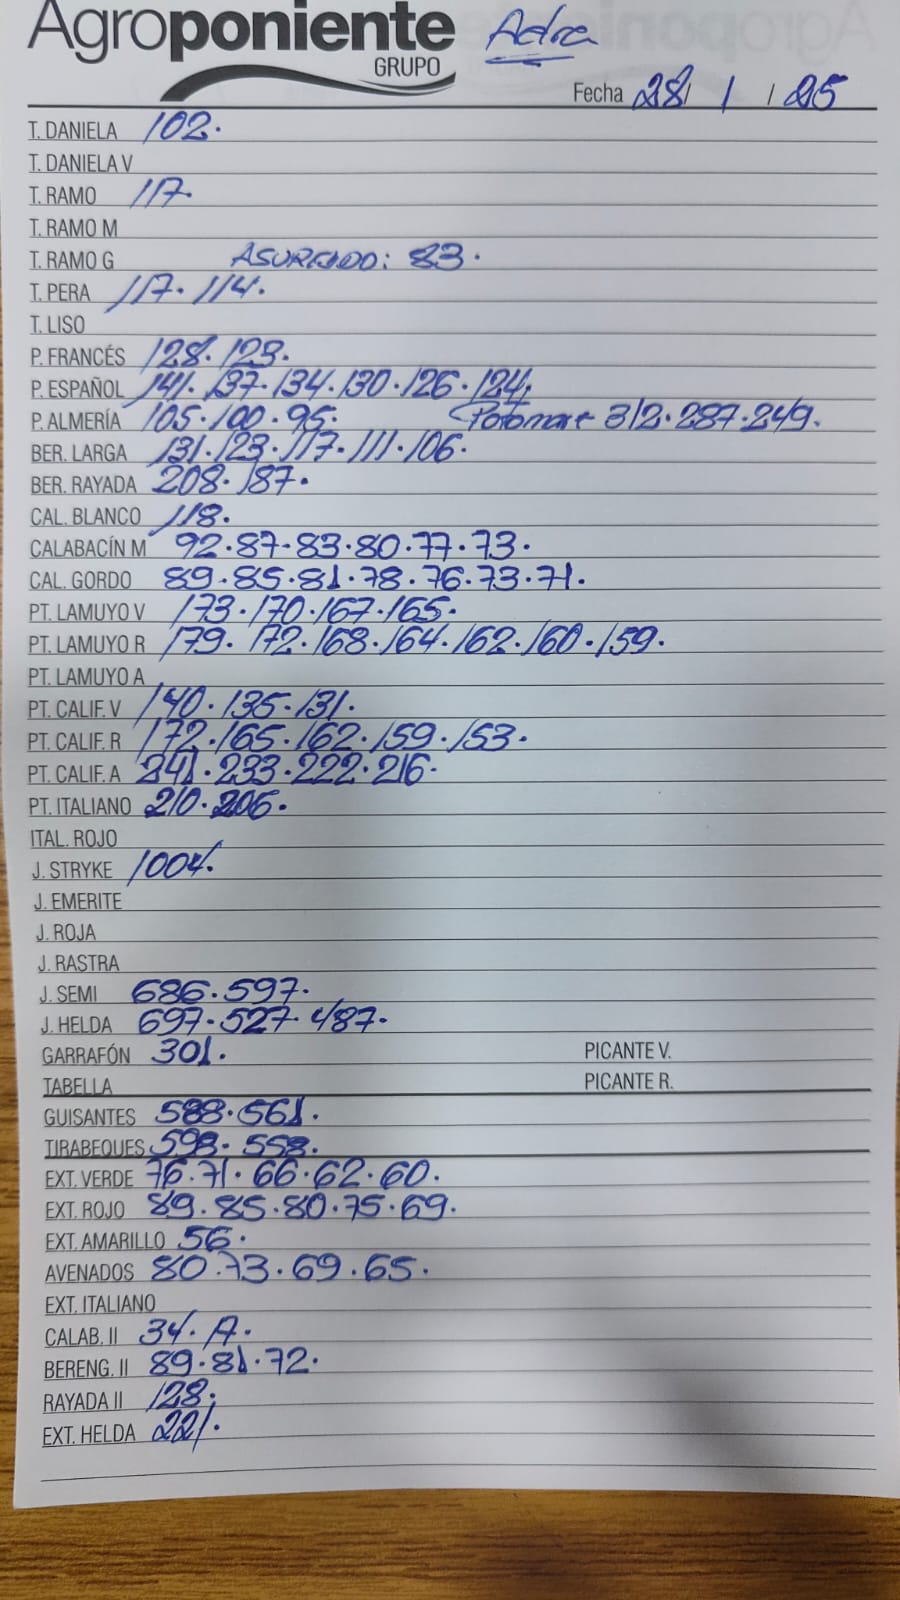 Agroponiente Adra
GRUPO
Fecha 28/ 1 / 25
T. DANIELA 102.
T. DANIELA V
T. RAMO 117.
T. RAMO M
T. RAMO G ASURCADO: 83.
T. PERA 117. 114.
T. LISO
P. FRANCÉS 128. 123.
P. ESPAÑOL 141. 137. 134. 130. 126. 124.
P. ALMERÍA 105. 100. 95. 312. 287. 249.
BER. LARGA 131. 123. 117. 111. 106.
BER. RAYADA 208. 187.
CAL. BLANCO 118.
CALABACÍN M 92. 87. 83. 80. 77. 73.
CAL. GORDO 89. 85. 81. 78. 76. 73. 71.
PT. LAMUYO V 173. 170. 167. 165.
PT. LAMUYO R 179. 172. 168. 164. 162. 160. 159.
PT. LAMUYO A
PT. CALIF. V 140. 135. 131.
PT. CALIF. R 172. 165. 162. 159. 153.
PT. CALIF. A 241. 233. 222. 216.
PT. ITALIANO 210. 206.
ITAL. ROJO
J. STRYKE 1004.
J. EMERITE
J. ROJA
J. RASTRA
J. SEMI 686. 597.
J. HELDA 697. 527. 487.
GARRAFÓN 301. PICANTE V.
TABELLA PICANTE R.
GUISANTES 588. 561.
TIRABEQUES 598. 558.
EXT. VERDE 76. 71. 66. 62. 60.
EXT. ROJO 89. 85. 80. 75. 69.
EXT. AMARILLO 56.
AVENADOS 80. 73. 69. 65.
EXT. ITALIANO
CALAB. II 34. A.
BERENG. II 89. 81. 72.
RAYADA II 128.
EXT. HELDA 221.